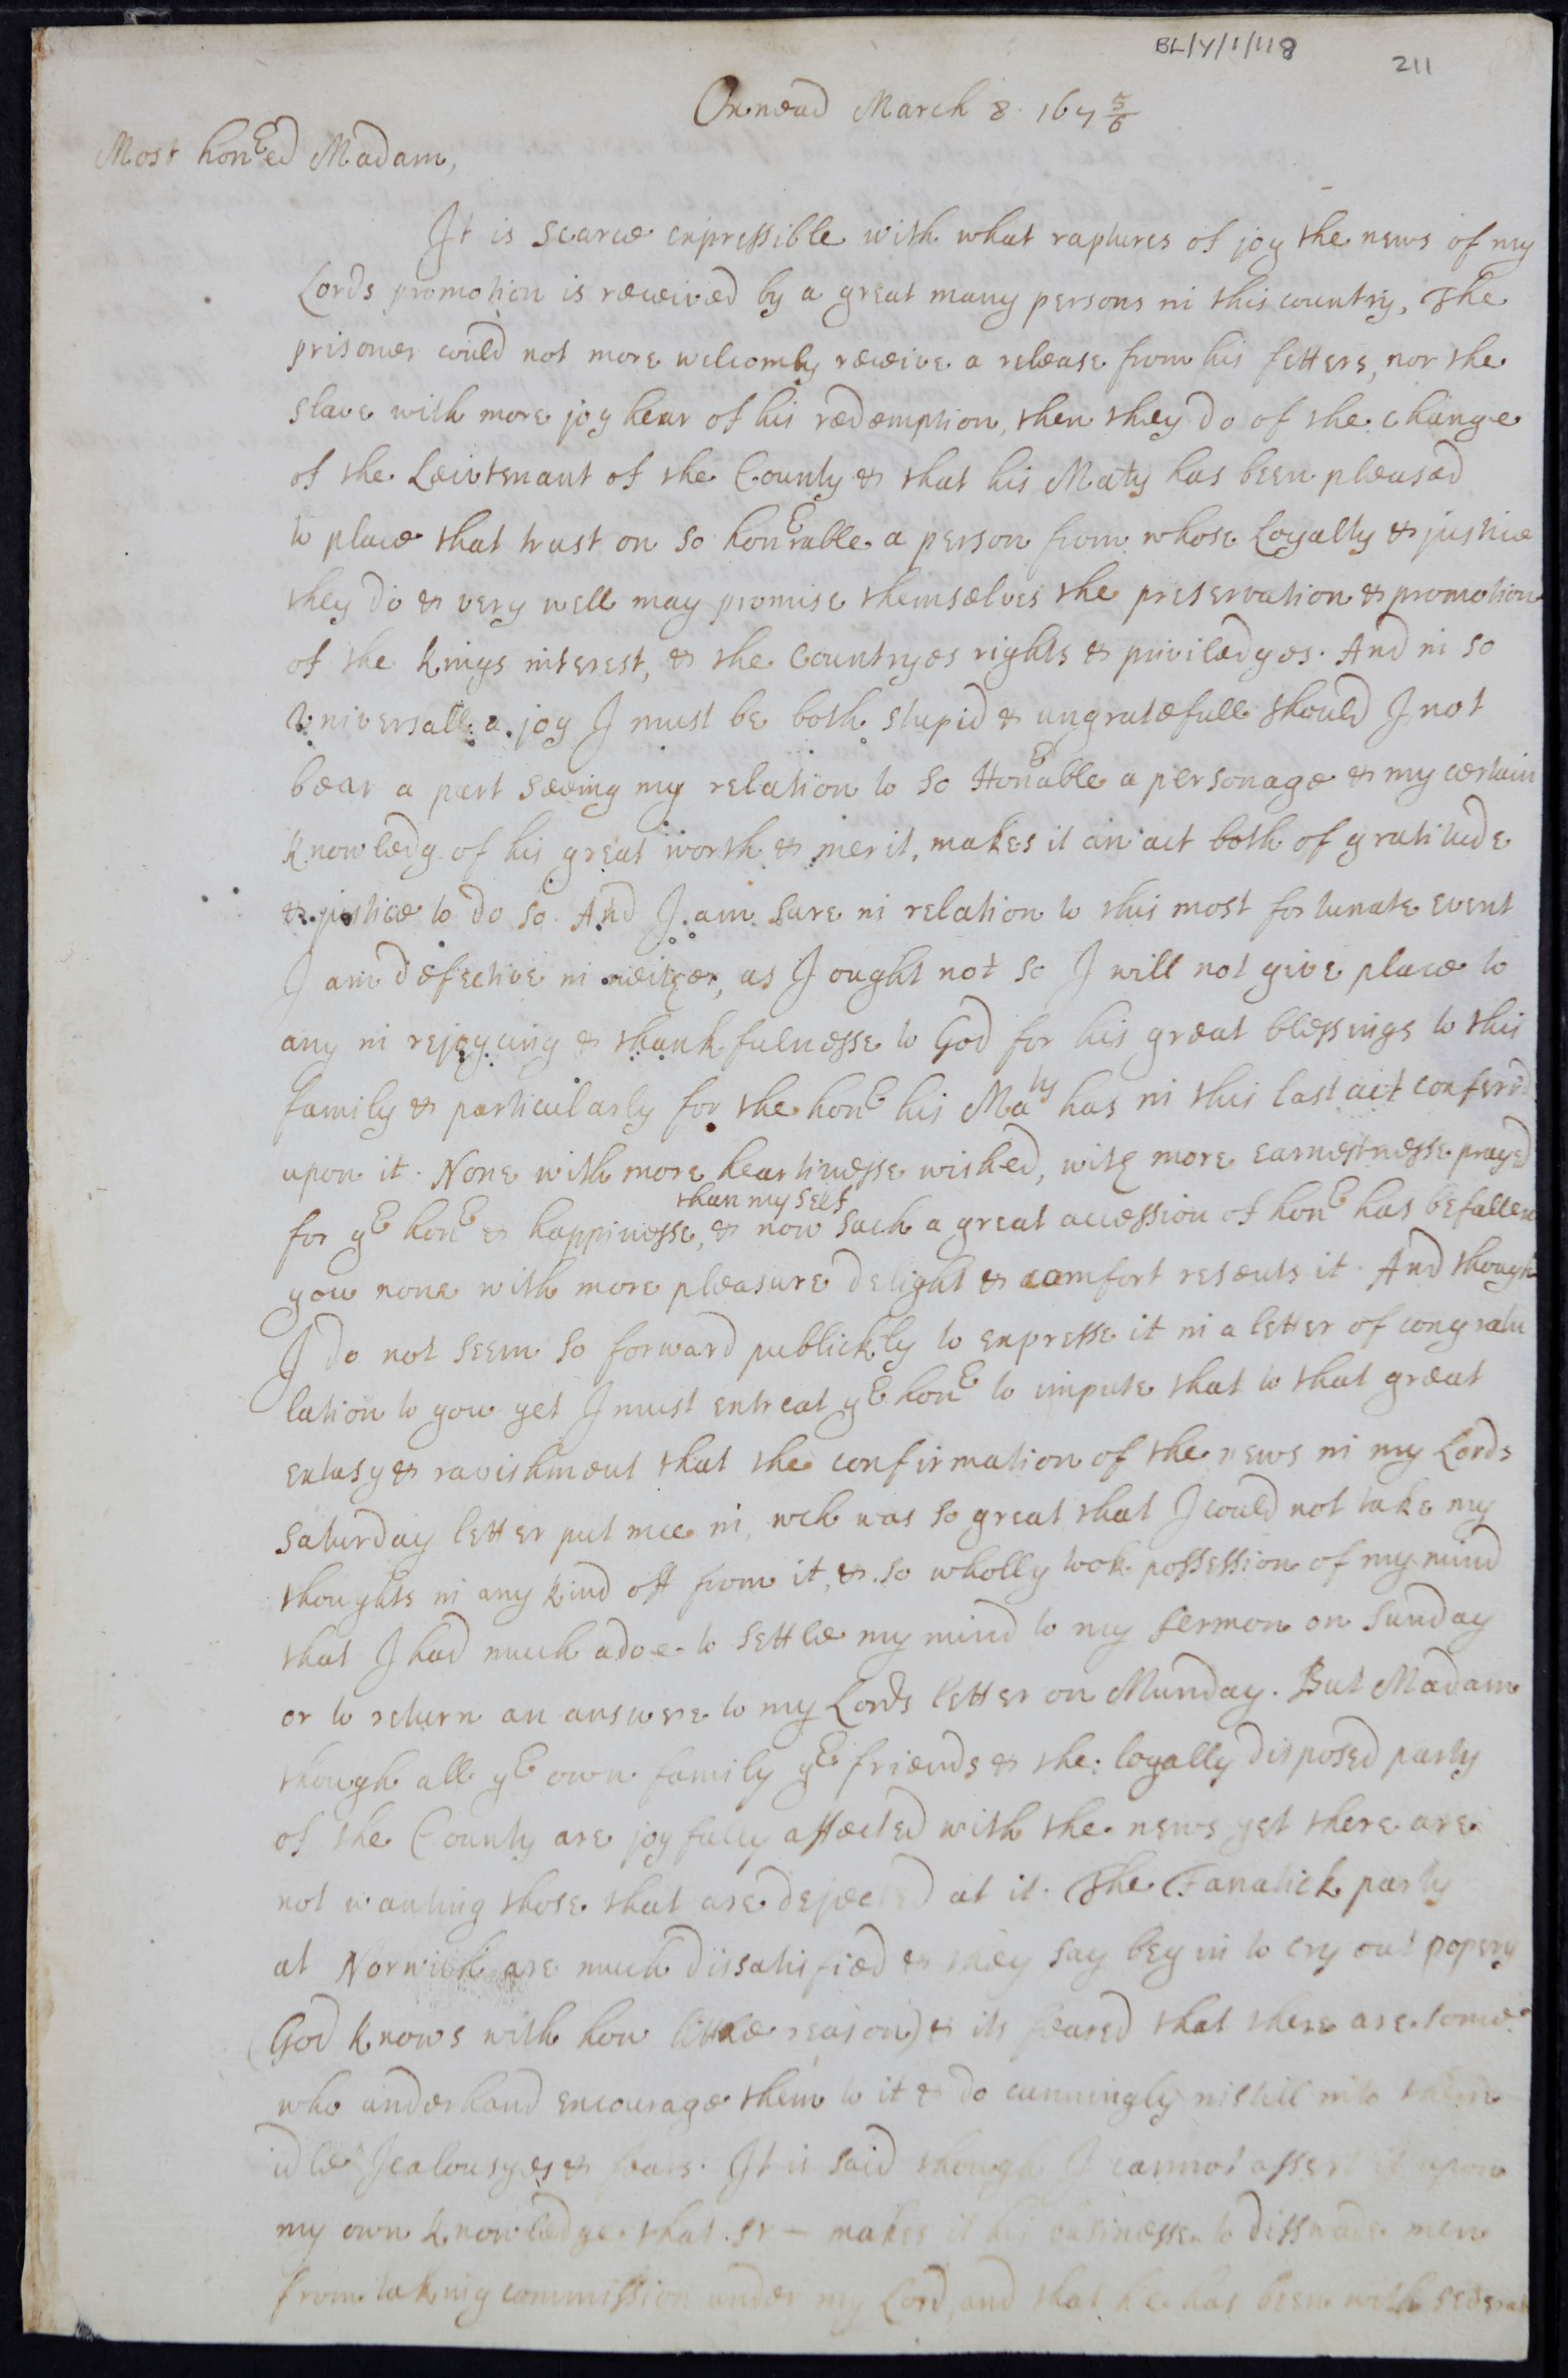 BL/Y/1/118
211
Oxnead March 8. 167 5/6
Most honred Madam,
It is scarce expressible with what raptures of joy the news of my
Lords promotion is received by a great many persons in this country, The
prisoner could not more welcomly receive a release from his fetters, nor the
slave with more joy hear of his redemption, then they do of the change
of the Leivtenant of the County & that his Maty has been pleased
to place that trust on so honrable a person from whose Loyalty & justice
they do & very well may promise themselves the preservation & promotion
of the kings interest, & the Countryes rights & priviledges. And in so
Universall a joy I must be both stupid & ungratefull should I not
bear a part seeing my relation to so Honrable a personage & my certain
knowledg of his great worth & merit, makes it an act both of gratitude
& justice to do so. And I am sure in relation to this most fortunate event
I am defective in neither, as I ought not so I will not give place to
any in rejoycing & thankfulnesse to God for his great blessings to this
family & particularly for the honr his Maty has in this last act conferrd
upon it. None with more heartinesse wished, with more earnestnesse prayed
than my self
for yr honr & happinesse, & now such a great accession of honr has befallen
you none with more pleasure delight & comfort resents it. And though
I do not seem so forward publickly to expresse it in a letter of congratu
lation to you yet I must entreat yr honr to impute that to that great
extasy & ravishment that the confirmation of the news in my Lords
Saturday letter put mee in, wch was so great that I could not take my
thoughts in any kind off from it, & so wholly took possession of my mind
that I had much adoe to settle my mind to my Sermon on Sunday
or to return an answere to my Lords letter on Munday. But Madam
though all yr own family yr friends & the loyally disposed party
of the County are joyfully affected with the news yet there are
not wanting those that are dejected at it. The Fanatick party
at Norwich are much dissatisfied & they say begin to cry out popery
(God knows with how little reason) & its feared that there are some
who underhand encourage them to it & do cunningly instill into them
idle Jealousyes & fears. It is said though I cannot assert it upon
my own knowledge that Sr — makes it his businesse to disswade men
from taking commission under my Lord, and that he has been with severall